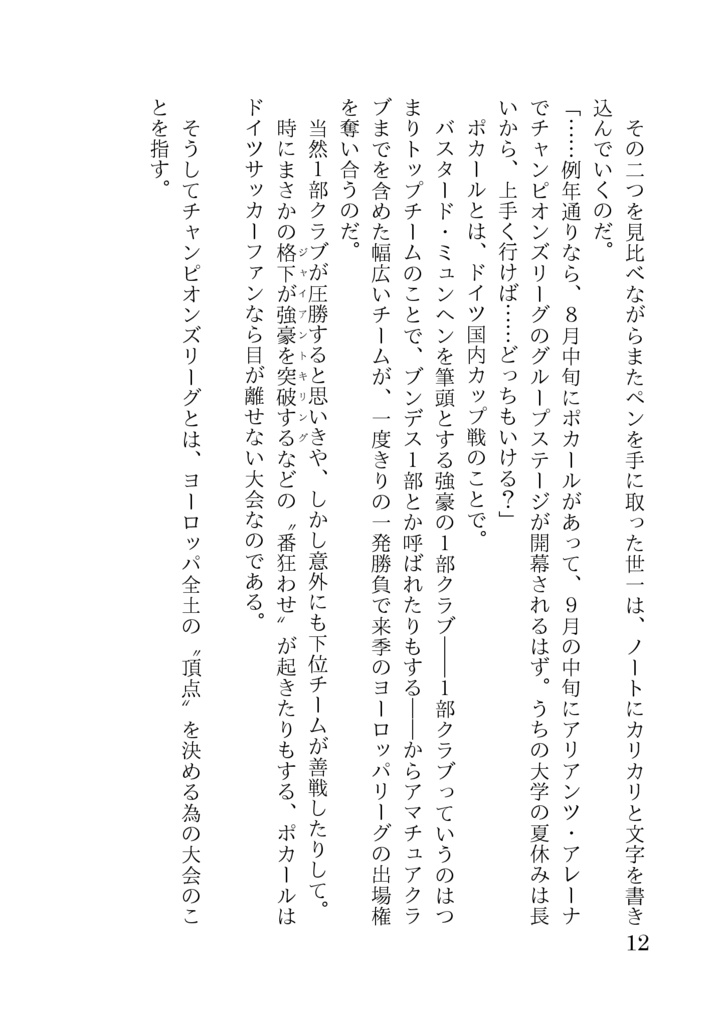 その二つを見比べながらまたペンを手に取った世一は、ノートにカリカリと文字を書き
込んでいくのだ。
「……例年通りなら、８月中旬にポカールがあって、９月の中旬にアリアンツ・アレーナ
でチャンピオンズリーグのグループステージが開幕されるはず。うちの大学の夏休みは長
いから、上手く行けば……どっちもいける？」
ポカールとは、ドイツ国内カップ戦のことで。
バスタード・ミュンヘンを筆頭とする強豪の１部クラブ――１部クラブっていうのはつ
まりトップチームのことで、ブンデス１部とか呼ばれたりもする――からアマチュアクラ
ブまでを含めた幅広いチームが、一度きりの一発勝負で来季のヨーロッパリーグの出場権
を奪い合うのだ。
当然１部クラブが圧勝すると思いきや、しかし意外にも下位チームが善戦したりして。
ジャイアントキリング
時にまさかの格下が強豪を突破するなどの〝番狂わせ〟が起きたりもする、ポカールは
ドイツサッカーファンなら目が離せない大会なのである。
そうしてチャンピオンズリーグとは、ヨーロッパ全土の〝頂点〟を決める為の大会のこ
とを指す。
12